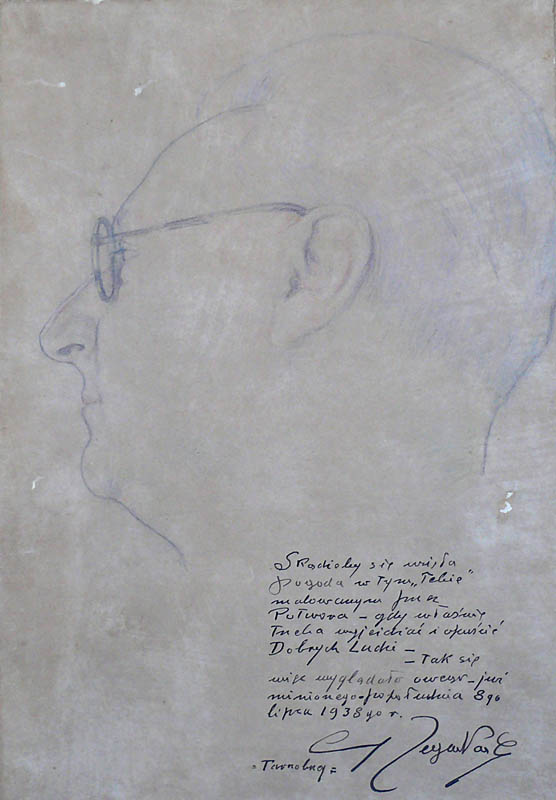 Skądioby się wzięła
pogoda w tym „Łebie"
malowanym przez
Potwora – gdy właśnie
trzeba wyjeżdżać i opuścić
Dobrych Ludzi –
– Tak się
więc wyglądało owego – już
minionego – popołudnia 8go
lipca 1938 go r.
Tarnobrzeg =